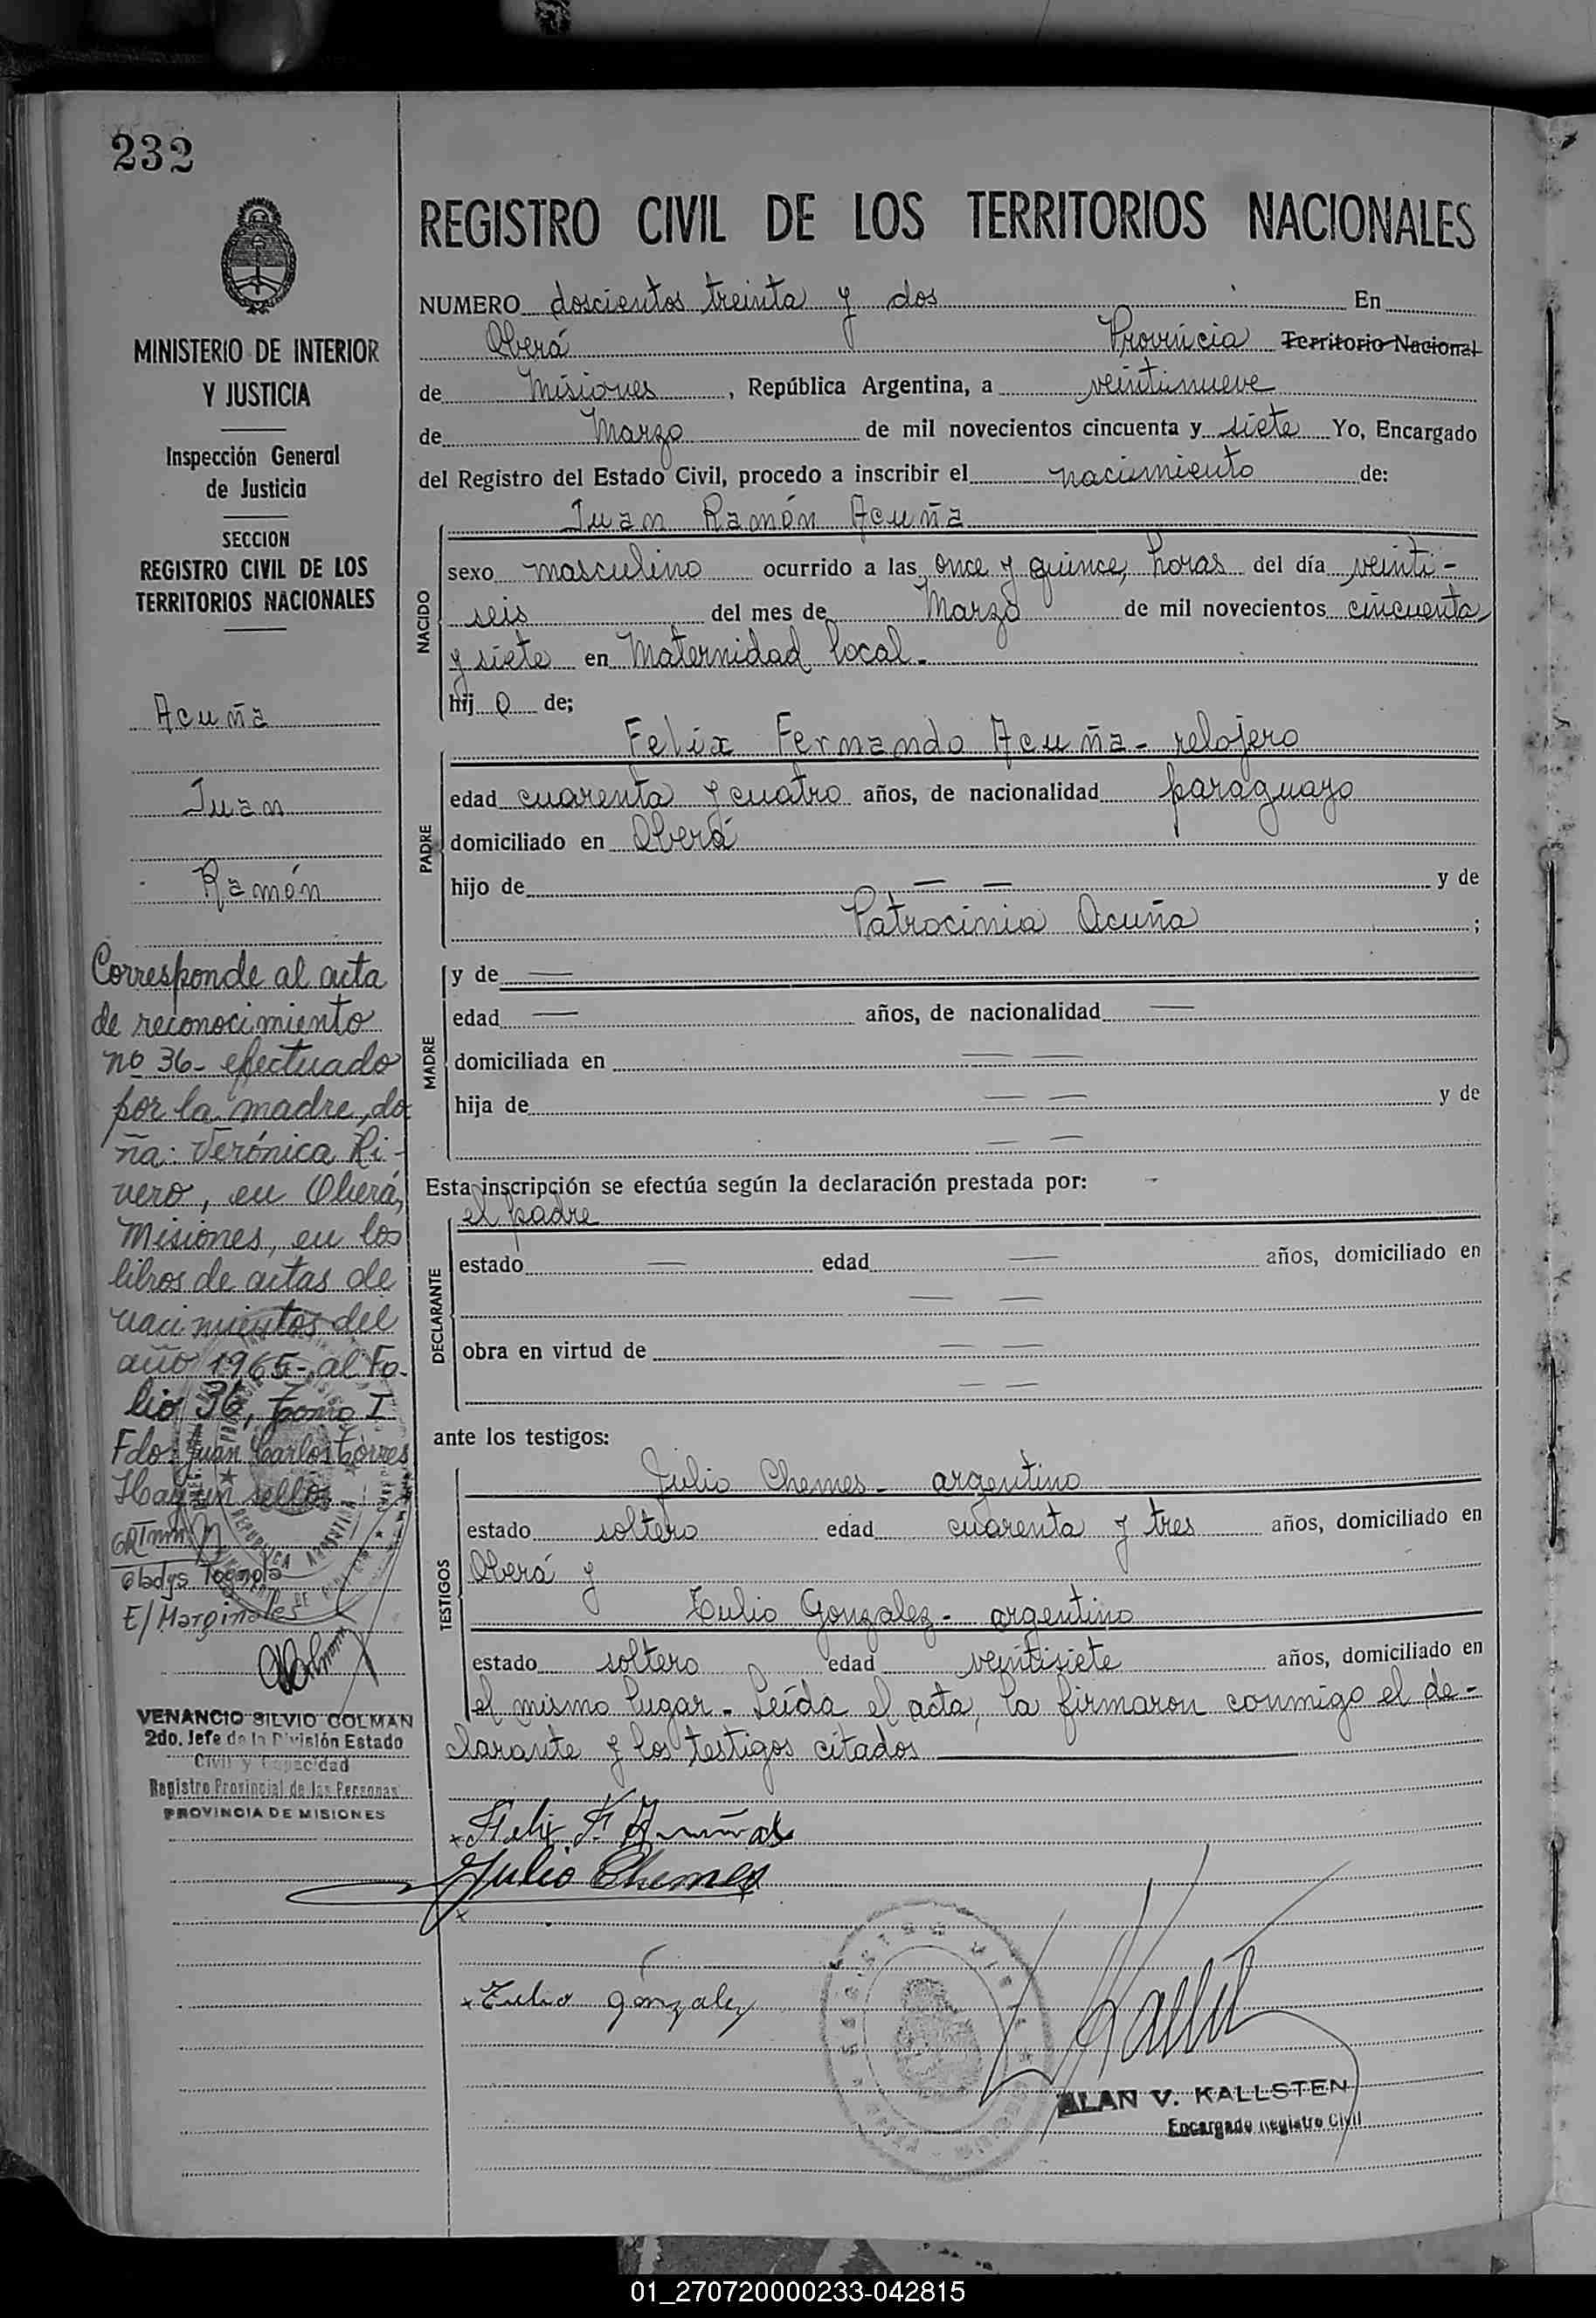 232
MINISTERIO DE INTERIOR
Y JUSTICIA
Inspección General
de Justicia
SECCION
REGISTRO CIVIL DE LOS
TERRITORIOS NACIONALES
Acuña
Juan
Ramón
Corresponde al acta
de reconocimiento
nº 36- efectuado
por la madre, do
ña: Verónica Ri-
vero, en Oberá,
Misiones, en los
libros de actas de
nacimientos del
año 1965- al Fo-
lio 36, Tomo I
Fdo: Juan Carlos Torres
Hay un sello
Gladys
E/Marginales
VENANCIO SILVIO COLMAN
2do. Jefe de la División Estado
Civil y Capacidad
Registro Provincial de las Personas
PROVINCIA DE MISIONES
REGISTRO CIVIL DE LOS TERRITORIOS NACIONALES
NUMERO doscientos treinta y dos En
Oberá Provincia Territorio Nacional
de Misiones, República Argentina, a veintinueve
de Marzo de mil novecientos cincuenta y siete Yo, Encargado
del Registro del Estado Civil, procedo a inscribir el nacimiento de:
NACIDO
Juan Ramón Acuña
sexo masculino ocurrido a las once y quince, horas del día veinti-
seis del mes de Marzo de mil novecientos cincuenta
y siete en Maternidad local.-
hij o de;
PADRE
Felix Fernando Acuña - relojero
edad cuarenta y cuatro años, de nacionalidad paraguayo
domiciliado en Oberá
hijo de — — y de
Patrocinia Acuña ;
MADRE
y de —
edad — años, de nacionalidad —
domiciliada en — —
hija de — — y de
— —
Esta inscripción se efectúa según la declaración prestada por:
DECLARANTE
el padre
estado — edad — años, domiciliado en
— —
obra en virtud de — —
— —
ante los testigos:
TESTIGOS
Julio Chemes - argentino
estado soltero edad cuarenta y tres años, domiciliado en
Oberá y
Tulio Gonzalez - argentino
estado soltero edad veintisiete años, domiciliado en
el mismo lugar - Leída el acta, la firmaron conmigo el de-
clarante y los testigos citados
x Felix F. Acuña
Julio Chemes
x
x Tulio gonzalez
ALAN V. KALLSTEN
Encargado Registro Civil
01_270720000233-042815